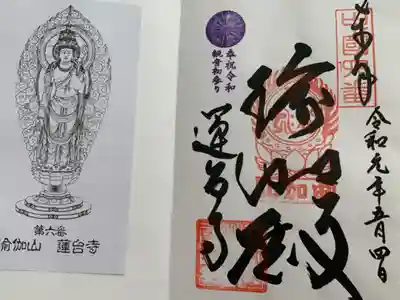 奉拝
令和元年五月四日
瑜伽殿
奉祝令和
観音初参り
蓮台寺
第六番
瑜伽山 蓮台寺